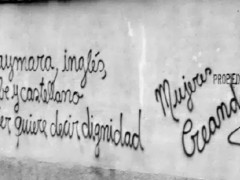 aymara, inglés,
be y castellano
er quiere decir dignidad
Mujeres
Creand